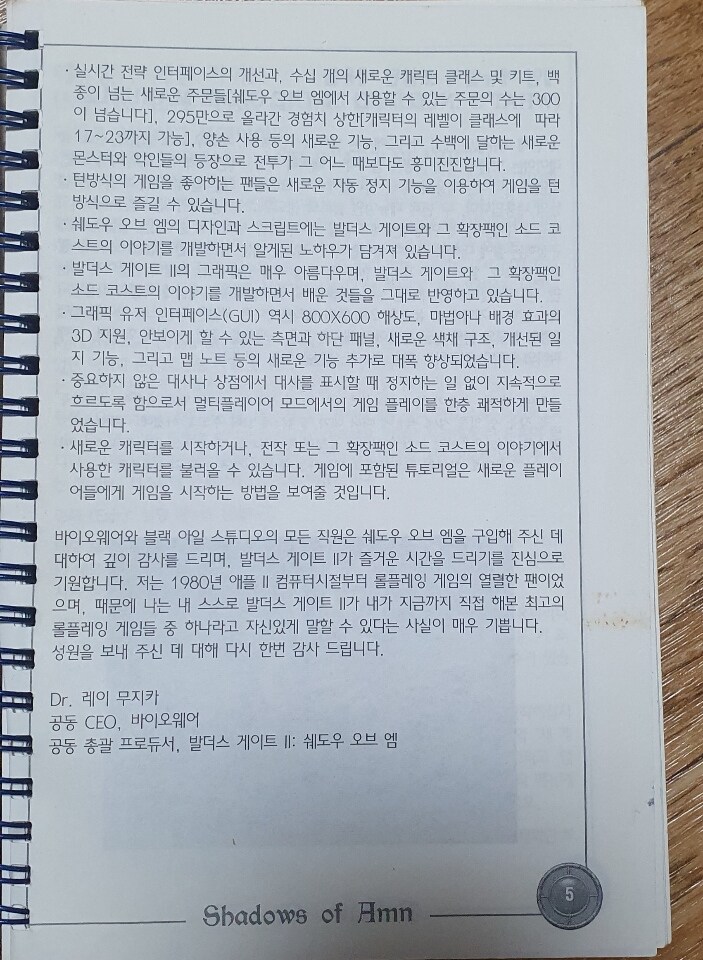 · 실시간 전략 인터페이스의 개선과, 수십 개의 새로운 캐릭터 클래스 및 키트, 백
종이 넘는 새로운 주문들[쉐도우 오브 엠에서 사용할 수 있는 주문의 수는 300
이 넘습니다], 295만으로 올라간 경험치 상한[캐릭터의 레벨이 클래스에 따라
17~23까지 가능], 양손 사용 등의 새로운 기능, 그리고 수백에 달하는 새로운
몬스터와 악인들의 등장으로 전투가 그 어느 때보다도 흥미진진합니다.
· 턴방식의 게임을 좋아하는 팬들은 새로운 자동 정지 기능을 이용하여 게임을 턴
방식으로 즐길 수 있습니다.
· 쉐도우 오브 엠의 디자인과 스크립트에는 발더스 게이트와 그 확장팩인 소드 코
스트의 이야기를 개발하면서 알게된 노하우가 담겨져 있습니다.
· 발더스 게이트 II의 그래픽은 매우 아름다우며, 발더스 게이트와 그 확장팩인
소드 코스트의 이야기를 개발하면서 배운 것들을 그대로 반영하고 있습니다.
· 그래픽 유저 인터페이스(GUI) 역시 800X600 해상도, 마법이나 배경 효과의
3D 지원, 안보이게 할 수 있는 측면과 하단 패널, 새로운 색채 구조, 개선된 일
지 기능, 그리고 맵 노트 등의 새로운 기능 추가로 대폭 향상되었습니다.
· 중요하지 않은 대사나 상점에서 대사를 표시할 때 정지하는 일 없이 지속적으로
흐르도록 함으로서 멀티플레이어 모드에서의 게임 플레이를 한층 쾌적하게 만들
었습니다.
· 새로운 캐릭터를 시작하거나, 전작 또는 그 확장팩인 소드 코스트의 이야기에서
사용한 캐릭터를 불러올 수 있습니다. 게임에 포함된 튜토리얼은 새로운 플레이
어들에게 게임을 시작하는 방법을 보여줄 것입니다.
바이오웨어와 블랙 아일 스튜디오의 모든 직원은 쉐도우 오브 엠을 구입해 주신 데
대하여 깊이 감사를 드리며, 발더스 게이트 II가 즐거운 시간을 드리기를 진심으로
기원합니다. 저는 1980년 애플 II 컴퓨터시절부터 롤플레잉 게임의 열렬한 팬이었
으며, 때문에 나는 내 스스로 발더스 게이트 II가 내가 지금까지 직접 해본 최고의
롤플레잉 게임들 중 하나라고 자신있게 말할 수 있다는 사실이 매우 기쁩니다.
성원을 보내 주신 데 대해 다시 한번 감사 드립니다.
Dr. 레이 무지카
공동 CEO, 바이오웨어
공동 총괄 프로듀서, 발더스 게이트 II: 쉐도우 오브 엠
5
Shadows of Amn